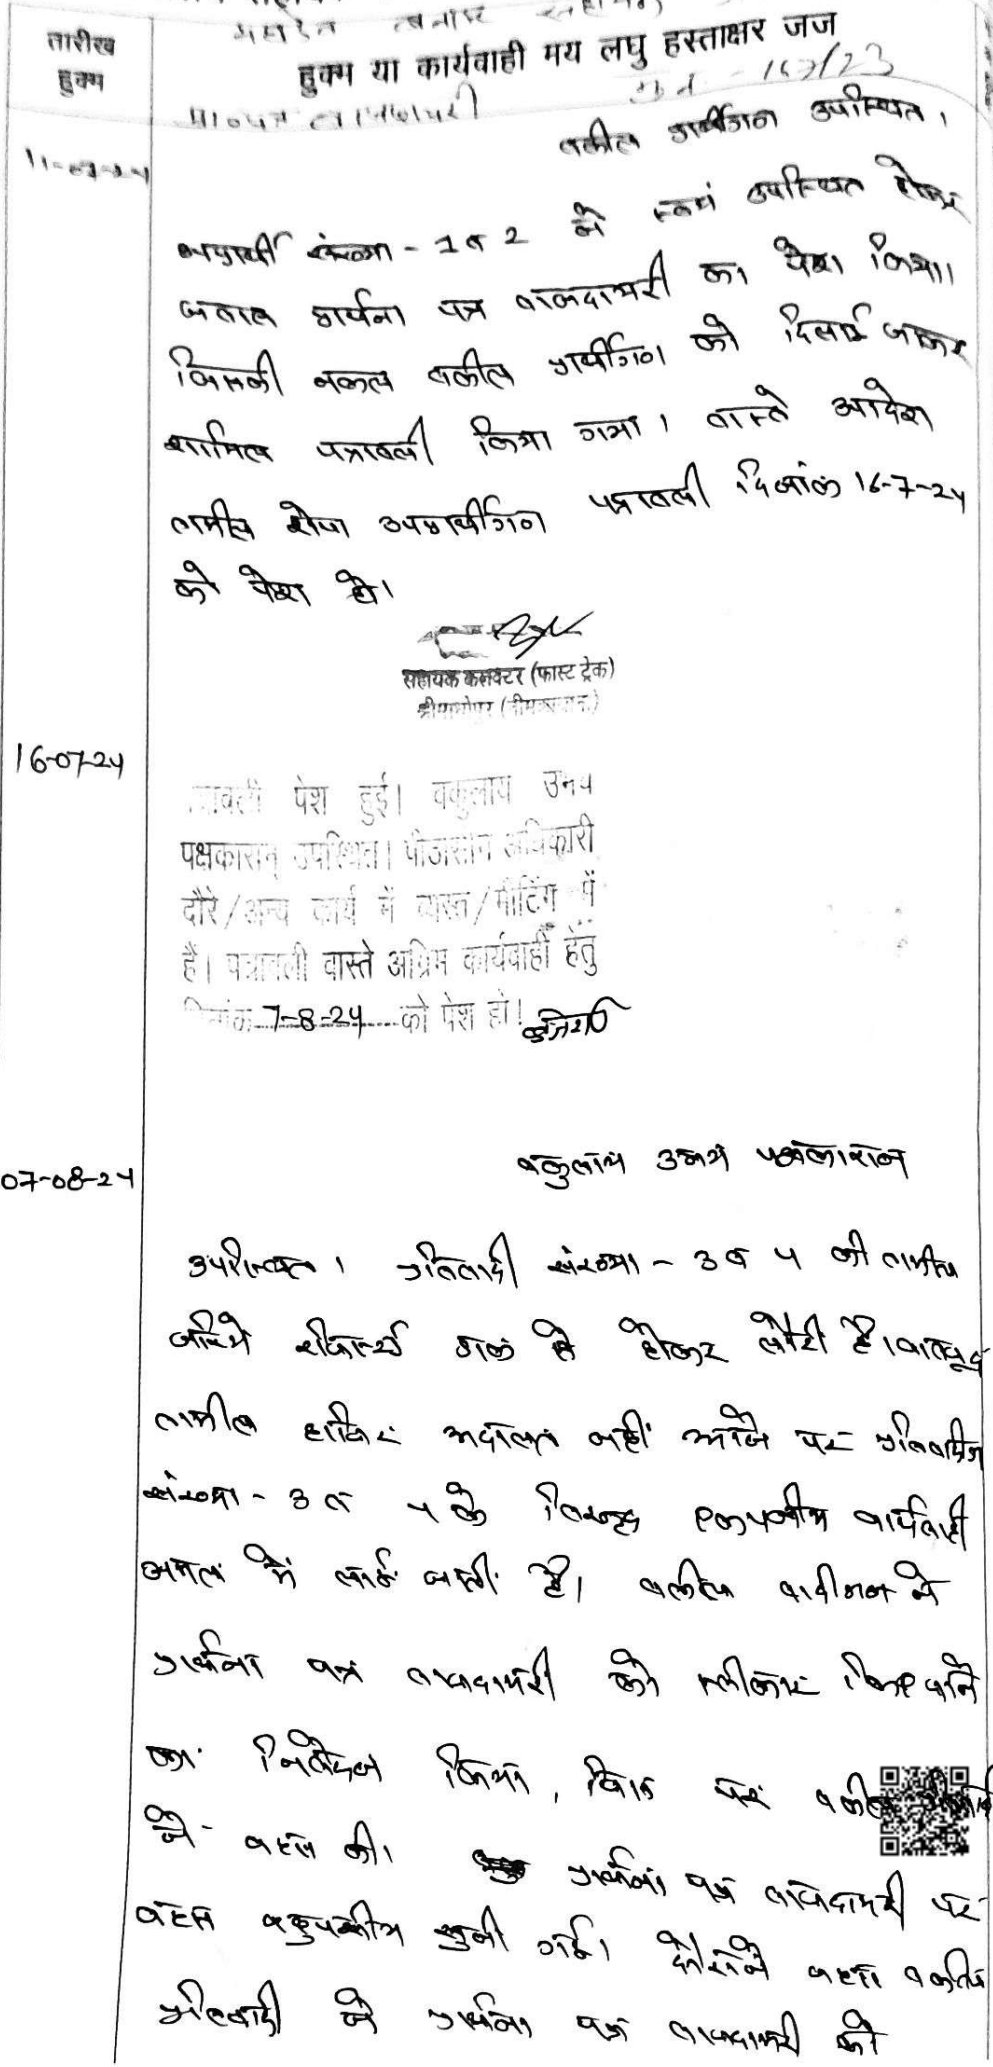 तारीख
हुक्म
हुक्म या कार्यवाही मय लघु हस्ताक्षर जज
मु.न. - 167/23
11-07-24
वकील प्रार्थीगण उपस्थित।
अप्रार्थी संख्या - 1 व 2 ने स्वयं उपस्थित होकर
जवाब प्रार्थना पत्र बाजदायरी का पेश किया।
जिसकी नकल वकील प्रार्थीगण को दिलाई जाकर
शामिल पत्रावली किया गया। वास्ते आदेश
तामील शेष अप्रार्थीगण पत्रावली दिनांक 16-7-24
को पेश हो।
सहायक कलक्टर (फास्ट ट्रेक)
श्रीमाधोपुर (नीमकाथाना)
16-07-24
पत्रावली पेश हुई। वकुलाय उभय
पक्षकारान् उपस्थित। पीठासीन अधिकारी
दौरे/अन्य कार्य में व्यस्त/मीटिंग में
हैं। पत्रावली वास्ते अग्रिम कार्यवाही हेतु
दिनांक 7-8-24 को पेश हो।
07-08-24
वकुलाय उभय पक्षकारान
उपस्थित। प्रतिवादी संख्या - 3 व 4 की तामील
जरिये रजिस्टर्ड डाक से होकर लौटी है। बावजूद
तामील हाजिर अदालत नहीं आने पर प्रतिवादीगण
संख्या - 3 व 4 के विरूद्ध एकपक्षीय कार्यवाही
अमल में लाई जाती है। वकील वादीगण ने
प्रार्थना पत्र बाजदायरी को स्वीकार किए जाने
का निवेदन किया, जिस पर वकील
ने बहस की। प्रार्थना पत्र बाजदायरी पर
बहस बहुपक्षीय सुनी गई। दौराने बहस वकील
प्रतिवादी ने प्रार्थना पत्र बाजदायरी को